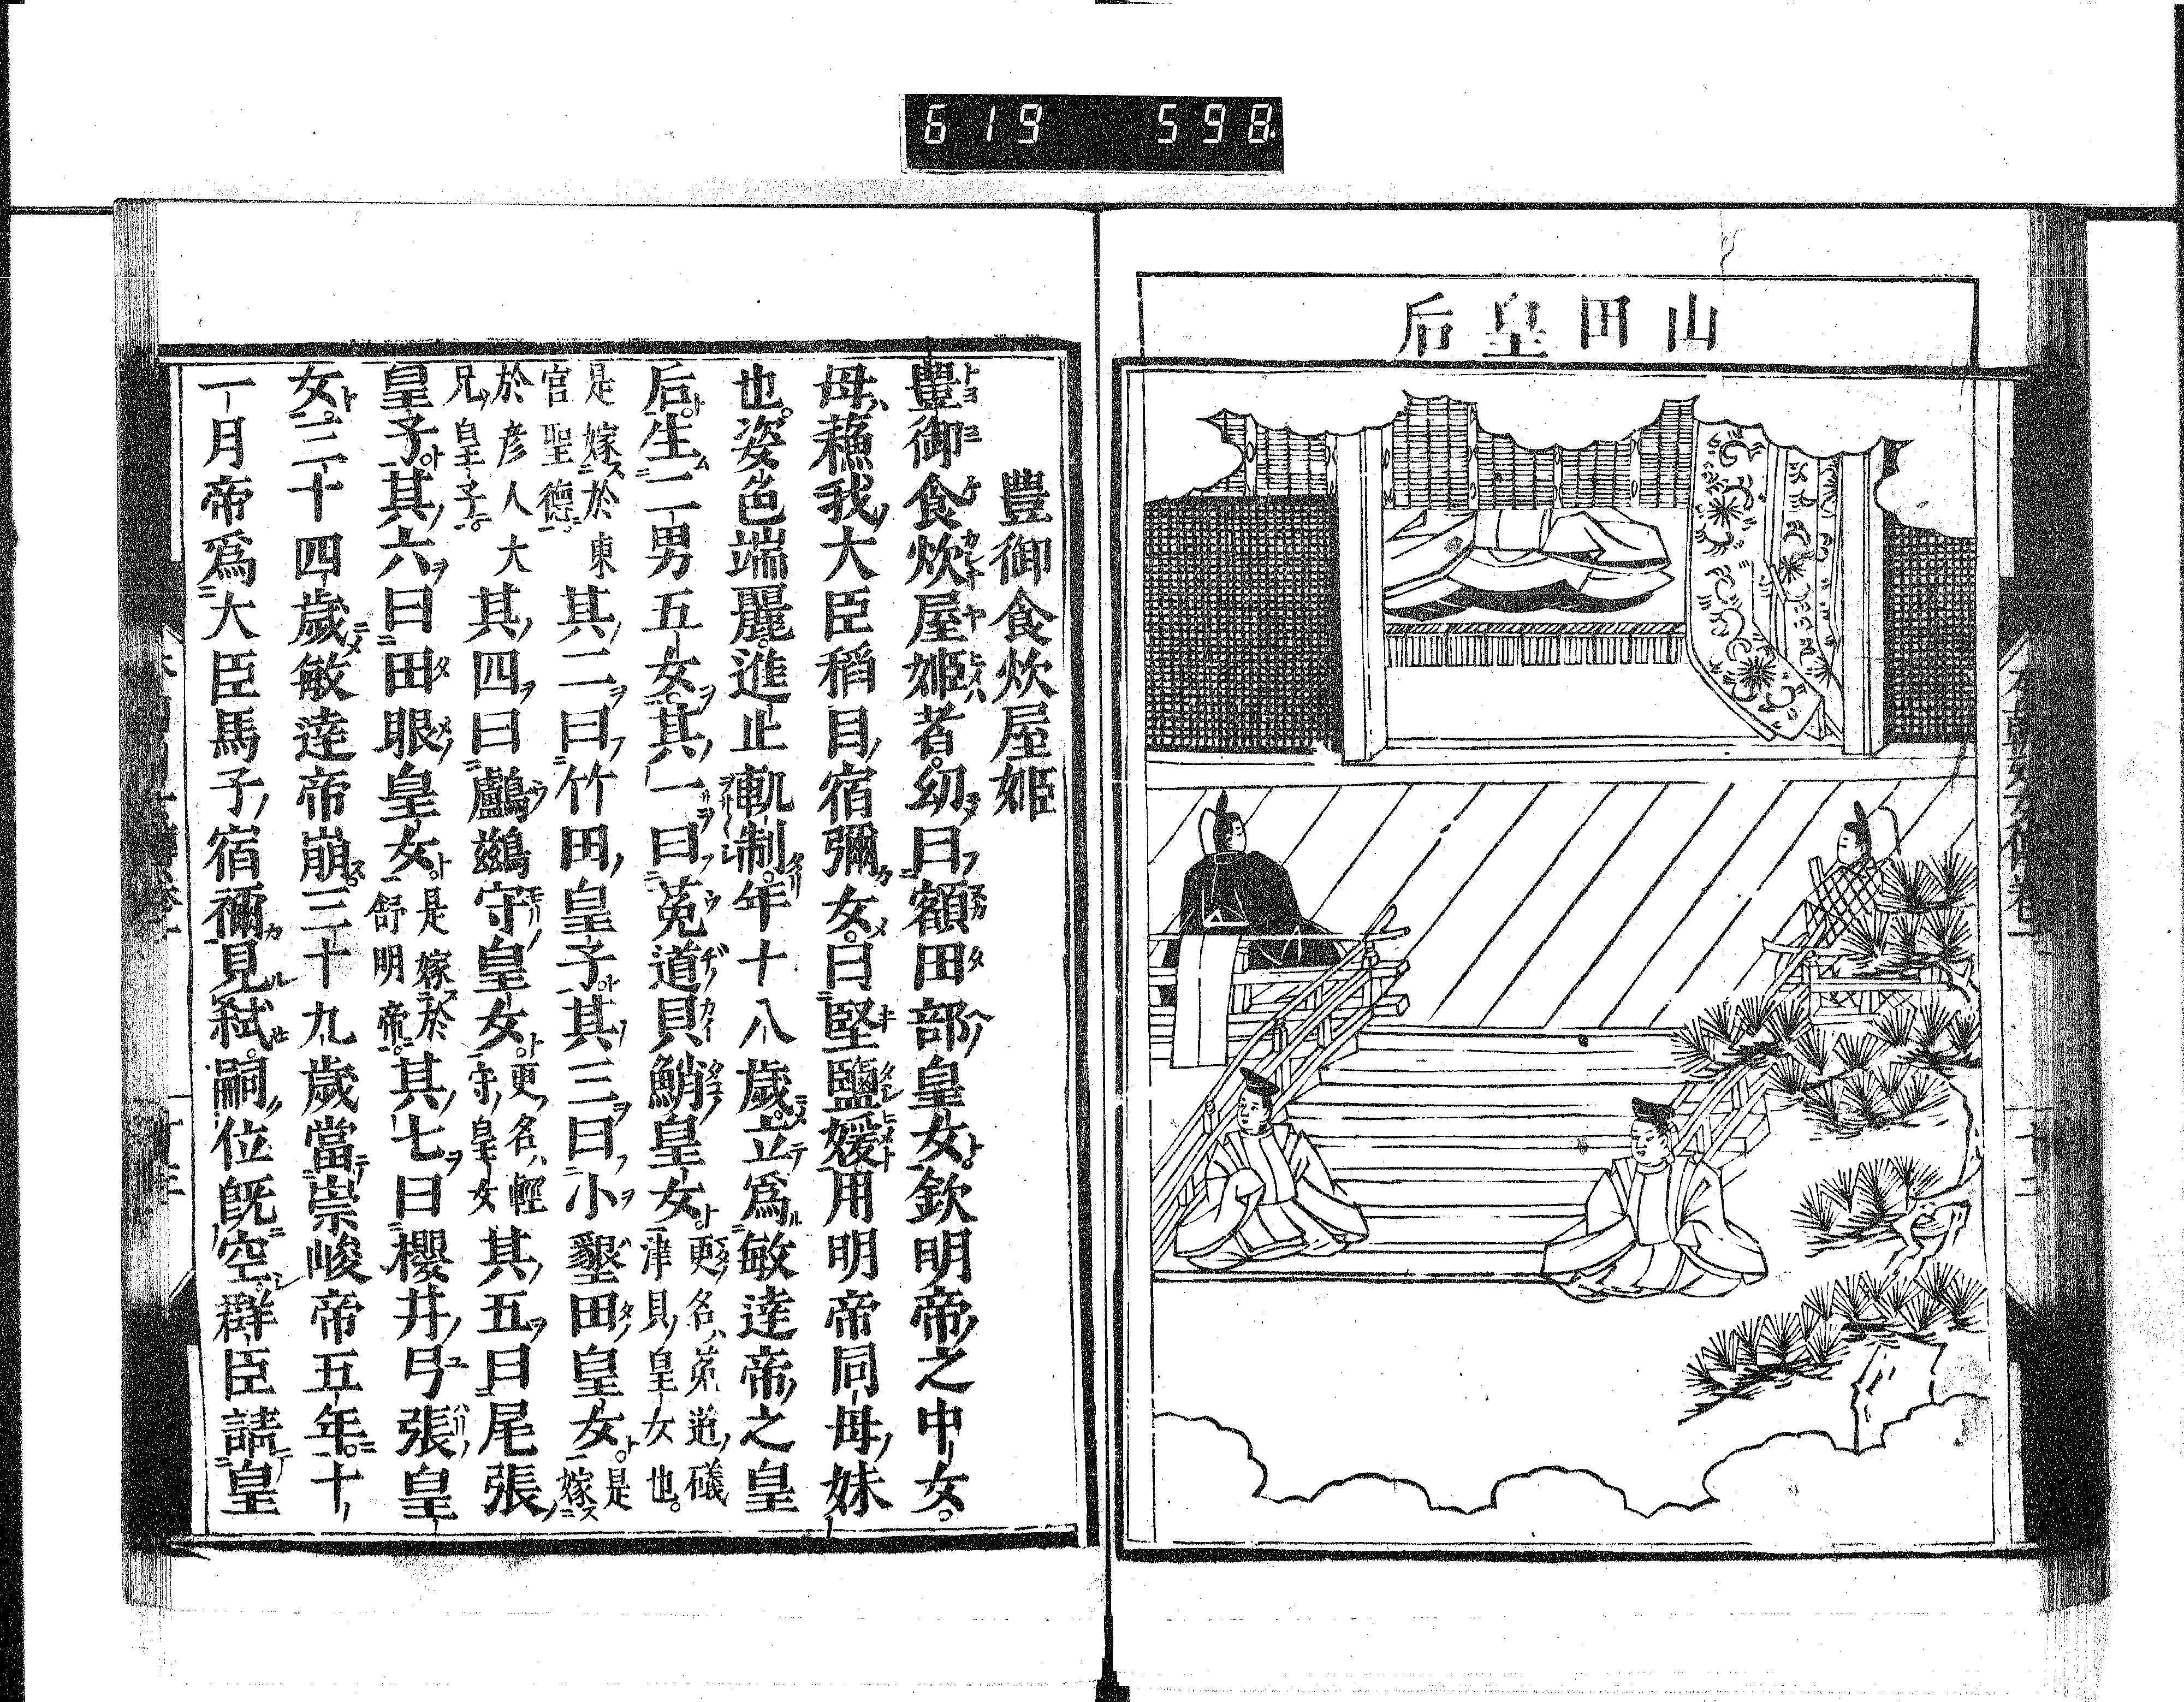 6 19 598.
山田皇后
豊御食炊屋姫
豊御食炊屋姫者。幼曰額田部皇女。欽明帝之中女。
母、蘓我大臣稻目宿彌女。曰堅鹽媛用明帝同母妹
也。姿色端麗。進止軌制。年十八歲。立爲敏達帝之皇
后。生二男五女。其一曰菟道貝鮹皇女。更名、菟道礒津貝皇女也。
其二曰竹田皇子。其三曰小墾田皇女。是嫁
是嫁於東宮聖德。
於彦人大兄皇子。其四曰鸕鷀守皇女。更名、輕守皇女其五曰尾張
皇子。其六曰田眼皇女。是嫁於舒明帝。其七曰櫻井弓張皇
女。三十四歲敏達帝崩。三十九歲當崇峻帝五年。十
一月帝爲大臣馬子宿禰見弑。嗣位既空。群臣請皇